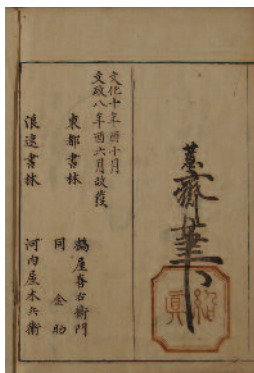 蕙齋筆
紹眞
文化十年酉十月
文政八年酉六月改
東都書林 鶴屋喜右衛門
同 金助
浪速書林 河内屋木兵衛